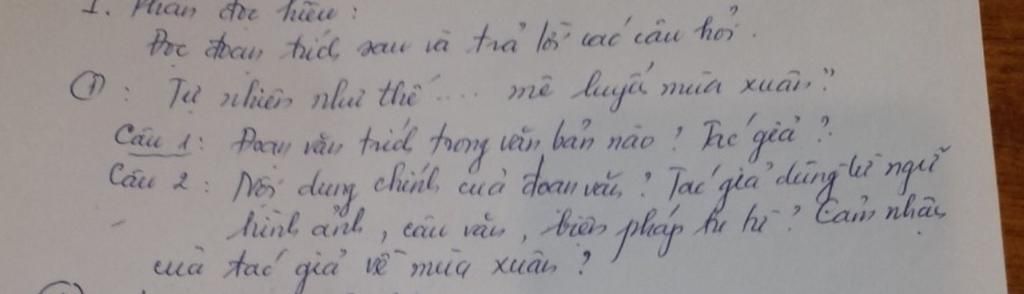 I. Phần đọc hiểu :
Đọc đoạn trích sau và trả lời các câu hỏi .
① : Tự nhiên như thế .... mê luyến mùa xuân."
Câu 1 : Đoạn văn trích trong văn bản nào ? Tác giả ?
Câu 2 : Nội dung chính của đoạn văn ? Tác giả dùng từ ngữ
hình ảnh , câu văn , biện pháp tu từ ? Cảm nhận
của tác giả về mùa xuân ?